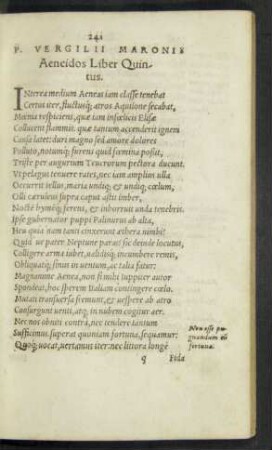 241
P. VERGILII MARONIS
Aeneidos Liber Quin-
tus.
INterea medium Aeneas iam classe tenebat
Certus iter, fluctusq; atros Aquilone secabat,
Mœnia respiciens, quæ iam infœlicis Elisæ
Collucent flammis. quæ tantum accenderit ignem
Causa latet: duri magno sed amore dolores
Polluto, notumq; furens quid fœmina possit,
Triste per augurium Teucrorum pectora ducunt.
Vt pelagus tenuere rates, nec iam amplius ulla
Occurrit tellus, maria undiq; & undiq; cœlum,
Olli cæruleus supra caput astit imber,
Nocte hyemẽq; ferens, & inhorruit unda tenebris.
Ipse gubernator puppi Palinurus ab alta,
Heu quia nam tanti cinxerunt æthera nimbi?
Quid ue pater Neptune paras? sic deinde locutus,
Colligere arma iubet, ualidisq; incumbere remis,
Obliquatq; sinus in uentum, ac talia fatur:
Magnanime Aenea, non si mihi Iuppiter autor
Spondeat, hoc sperem Italiam contingere cœlo.
Mutati transuersa fremunt, & uespere ab atro
Consurgunt uenti, atq; in nubem cogitur aer.
Nec nos obniti contra, nec tendere tantum
Sufficimus. superat quoniam fortuna, sequamur:
Quoq; uocat, uertamus iter. nec littora longè
Non esse pu
gnandum cũ
fortuna.
q Fida